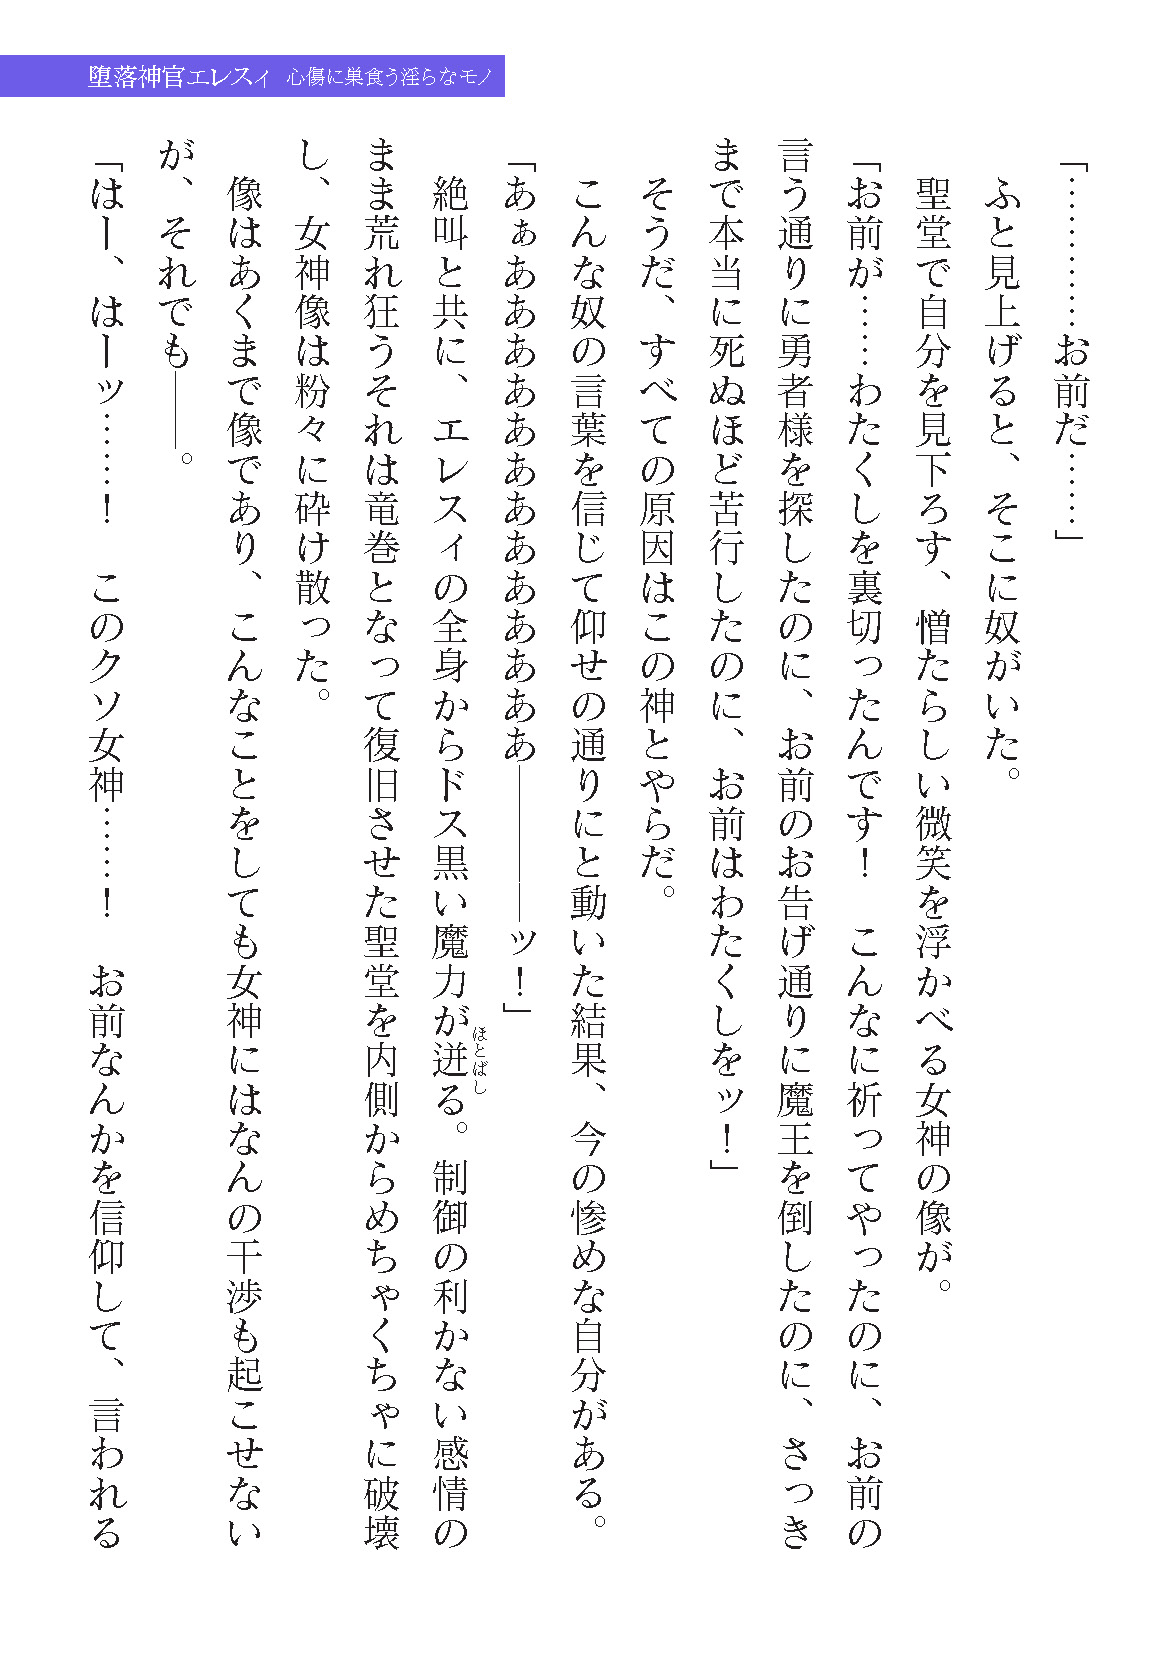 堕落神官エレスィ 心傷に巣食う淫らなモノ
「…………お前だ……」
　ふと見上げると、そこに奴がいた。
　聖堂で自分を見下ろす、憎たらしい微笑を浮かべる女神の像が。
「お前が……わたくしを裏切ったんです！　こんなに祈ってやったのに、お前の
言う通りに勇者様を探したのに、お前のお告げ通りに魔王を倒したのに、さっき
まで本当に死ぬほど苦行したのに、お前はわたくしをッ！」
　そうだ、すべての原因はこの神とやらだ。
　こんな奴の言葉を信じて仰せの通りにと動いた結果、今の惨めな自分がある。
「あぁあああああああああああああ――――ッ！」
　絶叫と共に、エレスィの全身からドス黒い魔力が迸る。制御の利かない感情の
ほとばし
まま荒れ狂うそれは竜巻となって復旧させた聖堂を内側からめちゃくちゃに破壊
し、女神像は粉々に砕け散った。
　像はあくまで像であり、こんなことをしても女神にはなんの干渉も起こせない
が、それでも――。
「はー、はーッ……！　このクソ女神……！　お前なんかを信仰して、言われる